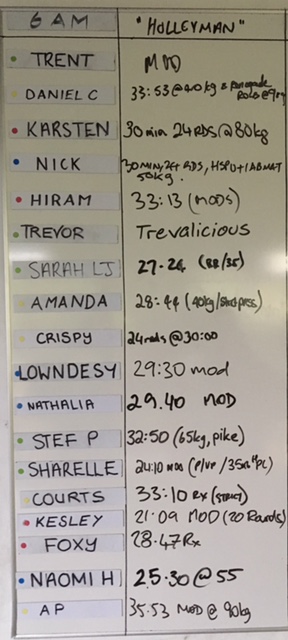 6 AM "HOLLEYMAN"
TRENT MOD
DANIEL C 33:53 @ 40 kg &
KARSTEN 30 min 24 RDS @ 80kg
NICK 30 MIN, 24 RDS, HSPU + 1 ABMAT
50kg.
HIRAM 33:13 (MODS)
TREVOR Trevalicious
SARAH LJ 27-26 (88/35)
AMANDA 28:44 (40kg/strict press)
CRISPY 24 rnds @ 30:00
LOWNDESY 29:30 mod
NATHALIA 29.40 MOD
STEF P 32:50 (65kg, pike)
SHARELLE 24:10 MOD
COURTS 33:10 Rx (STRICT)
KESLEY 21:09 MOD (20 Rounds)
FOXY 28.47 Rx
NAOMI H 25.30 @ 55
AP 35.53 MOD @ 90kg